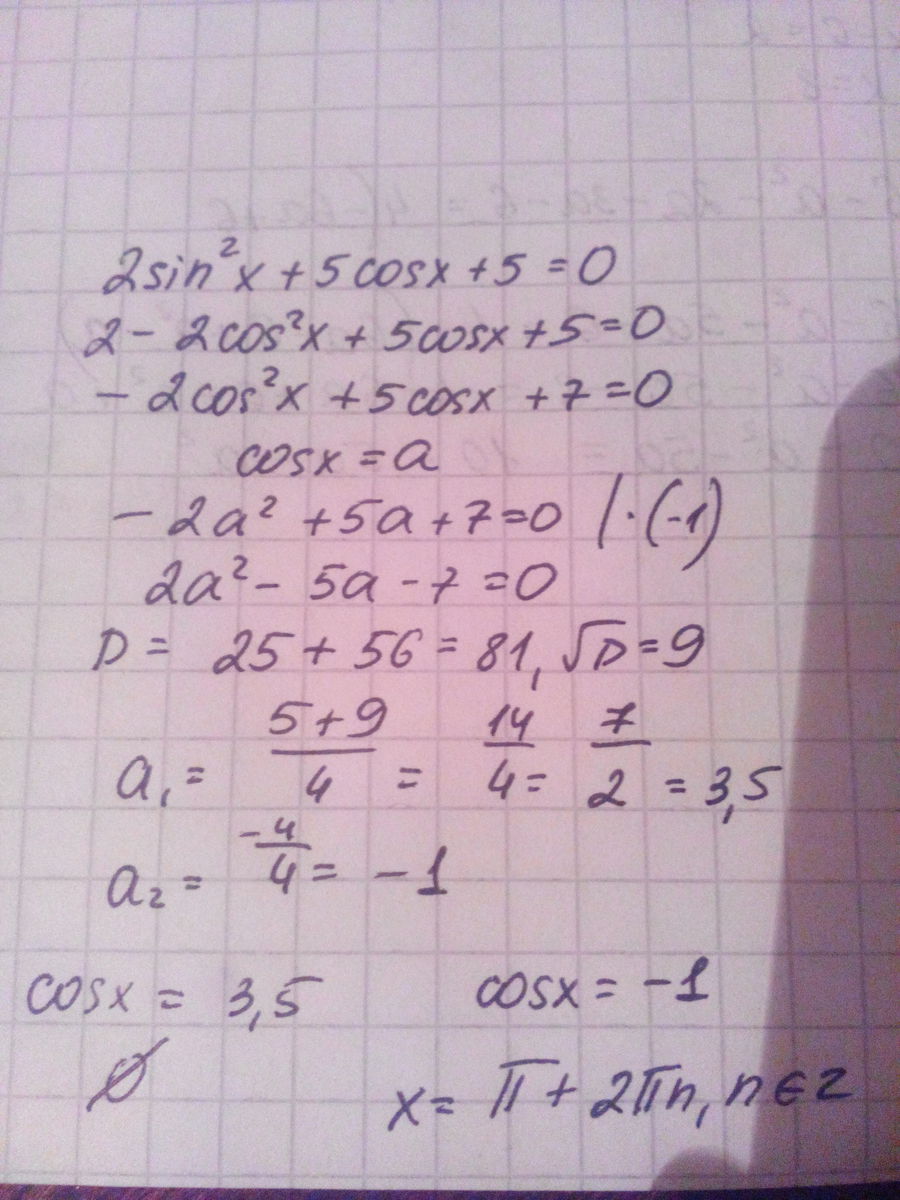 2sin²x + 5cosx + 5 = 0
2 - 2cos²x + 5cosx + 5 = 0
- 2cos²x + 5cosx + 7 = 0
cosx = a
- 2a² + 5a + 7 = 0 | · (-1)
2a² - 5a - 7 = 0
D = 25 + 56 = 81, √D = 9
a₁ = (5+9)/4 = 14/4 = 7/2 = 3,5
a₂ = -4/4 = -1
cosx = 3,5 cosx = -1
∅ x = π + 2πn, n ∈ z